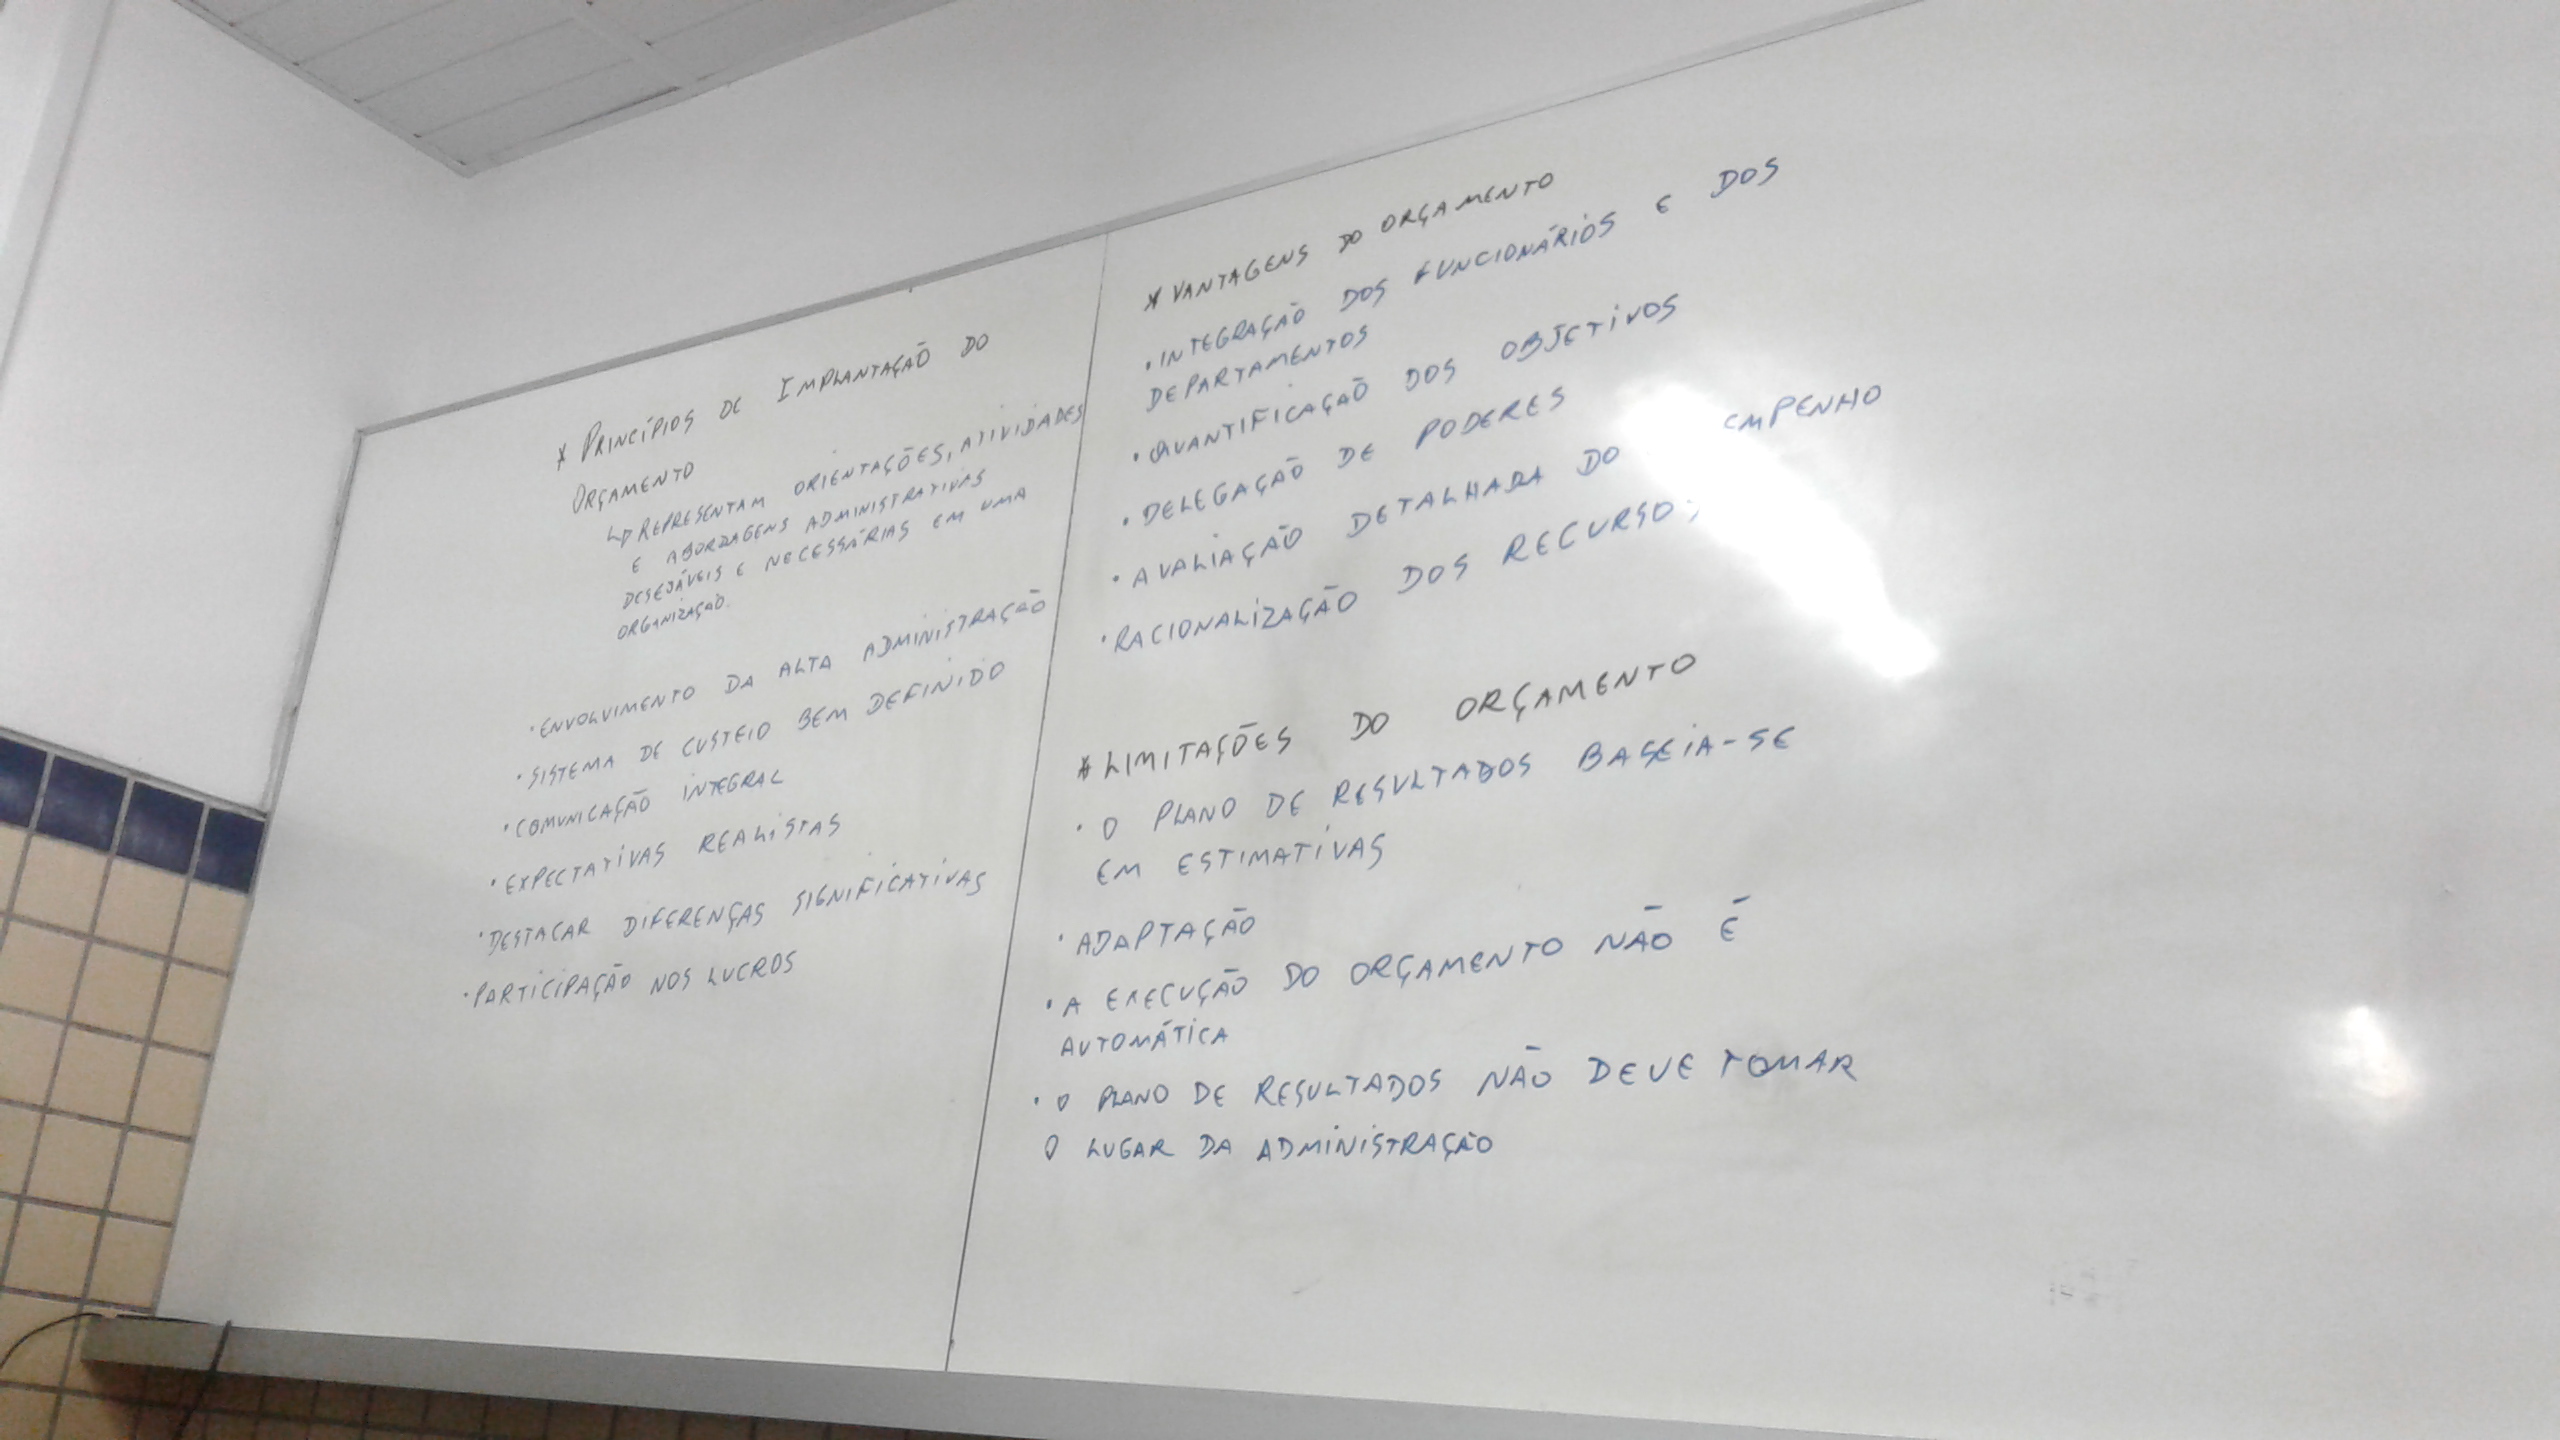 * PRINCÍPIOS DE IMPLANTAÇÃO DO
ORÇAMENTO
↳ REPRESENTAM ORIENTAÇÕES, ATIVIDADES
E ABORDAGENS ADMINISTRATIVAS
DESEJÁVEIS E NECESSÁRIAS EM UMA
ORGANIZAÇÃO.
· ENVOLVIMENTO DA ALTA ADMINISTRAÇÃO
· SISTEMA DE CUSTEIO BEM DEFINIDO
· COMUNICAÇÃO INTEGRAL
· EXPECTATIVAS REALISTAS
· DESTACAR DIFERENÇAS SIGNIFICATIVAS
· PARTICIPAÇÃO NOS LUCROS
* VANTAGENS DO ORÇAMENTO
· INTEGRAÇÃO DOS FUNCIONÁRIOS E DOS
DEPARTAMENTOS
· QUANTIFICAÇÃO DOS OBJETIVOS
· DELEGAÇÃO DE PODERES
· AVALIAÇÃO DETALHADA DO EMPENHO
· RACIONALIZAÇÃO DOS RECURSOS
* LIMITAÇÕES DO ORÇAMENTO
· O PLANO DE RESULTADOS BASEIA-SE
EM ESTIMATIVAS
· ADAPTAÇÃO
· A EXECUÇÃO DO ORÇAMENTO NÃO É
AUTOMÁTICA
· O PLANO DE RESULTADOS NÃO DEVE TOMAR
O LUGAR DA ADMINISTRAÇÃO